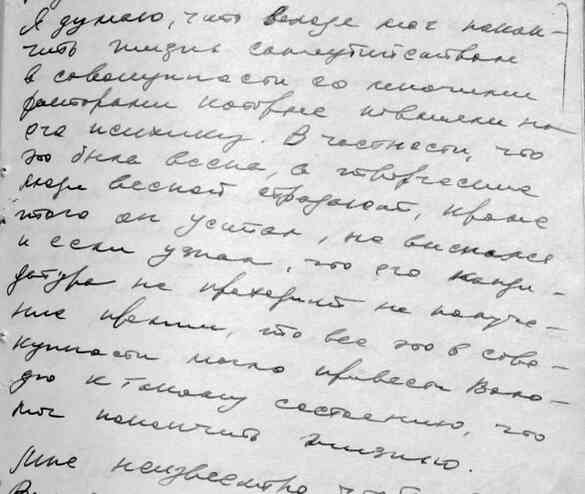 Я думаю, что Володя мог покон-
чить жизнь самоубийством
в совокупности со многими
факторами которые повлияли на
его психику. В частности, что
это была весна, а творческие
люди весной страдают, кроме
этого он устал, не выспался
и если узнал, что его канди-
датура не проходит на получе-
ние премии, то все это в сово-
купности могло привести Воло-
дю к такому состоянию, что
мог покончить жизнью.
Мне неизвестно